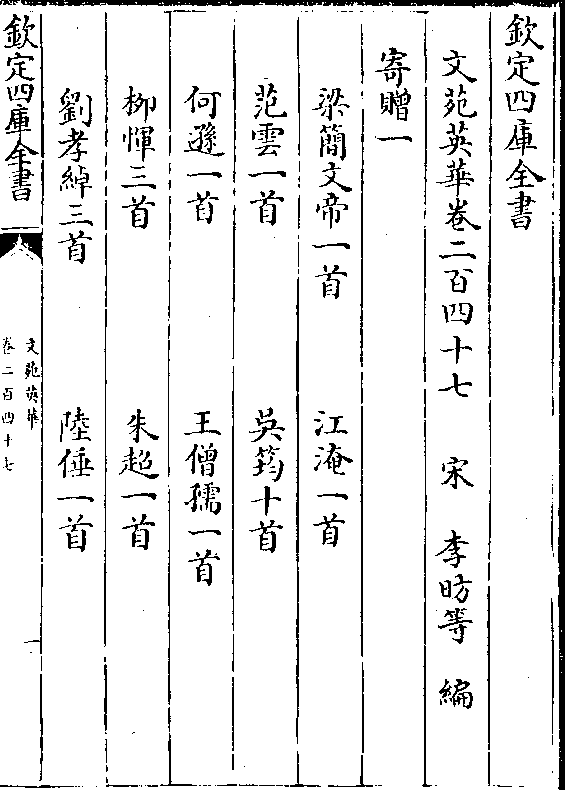 欽定四庫全書
文苑英華卷二百四十七 宋 李昉等 編
寄贈一
梁簡文帝一首 江淹一首
范雲一首 吳筠十首
何遜一首 王僧孺一首
栁惲三首 朱超一首
劉孝綽三首 陸倕一首
欽定四庫全書
文苑英華
卷二百四十七
一